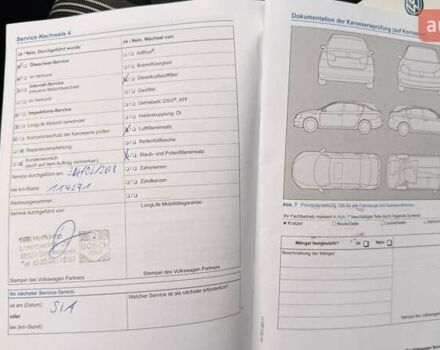 Service-Nachweis 4
Ja / Nein. Durchgeführt wurde:
Ölwechsel-Service
im Verbund
Intervall-Service
inklusive Motorölwechsel
im Verbund
Inspektions-Service
LongLife Motoröl verwendet
Korrosionsschutz der Karosserie prüfen
Reparaturempfehlung
Kundenwunsch
(auch auf dem Auftrag vermerken)
Service durchgeführt am:
bei km-Stand: 114291
Rechnungsnummer:
Service durchgeführt von:
BOSCH
Stempel des Volkswagen Partners
Ja / Nein. Wechsel von:
AdBlue®
Bremsflüssigkeit
Dieselkraftstofffilter
Gasfilter
Getriebeöl: DSG®, ATF
Haldexkupplung: Öl
Luftfiltereinsatz
Reifenfüllflasche
Staub- und Pollenfiltereinsatz
Zahnriemen
Zündkerzen
LongLife Mobilitätsgarantie:
Stempel des Volkswagen Partners
Ihr nächster Service-Termin:
ist am (Datum):
oder
bei (km-Stand):
Welcher Service ist als nächster erforderlich?
Dokumentation der Karosserieprüfung (auf Korrosi
Abb. 7 Prinzipdarstellung: Gilt für alle Fahrzeuge und Karosserieformen.
Ihr Fachbetrieb markiert in Abb. 7 beschädigte Teile durch folgende Symbole:
Kratzer
Beule/Delle
Lackschaden
Mängel festgestellt?
Ja
Nein
Beschreibung der Mängel:
au